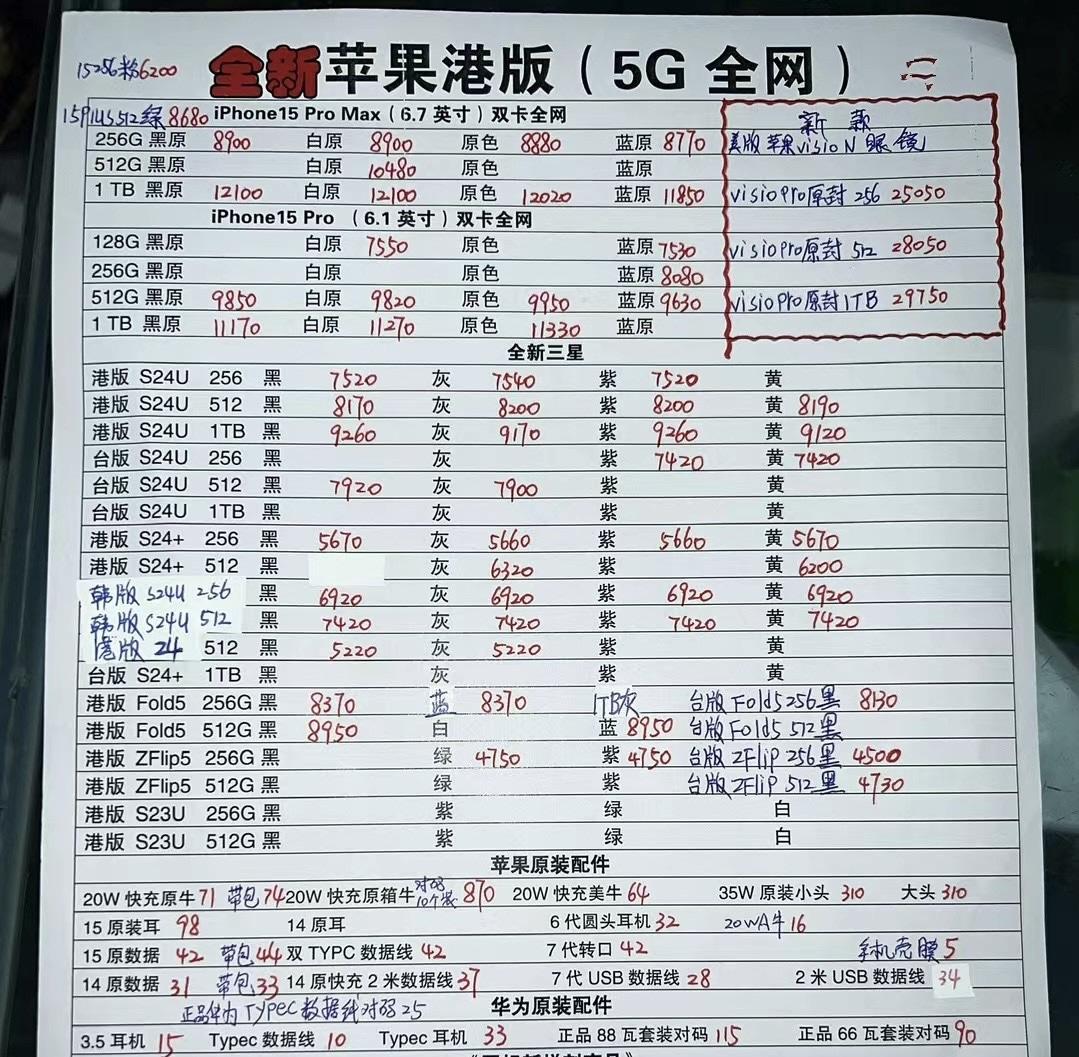 15256粉6200 全新苹果港版（5G 全网） 三
15P145512绿8680 iPhone15 Pro Max（6.7 英寸）双卡全网 新 款
256G 黑原 8900 白原 8900 原色 8880 蓝原 8770 美版苹果visioN眼镜
512G 黑原 白原 10480 原色 蓝原
1 TB 黑原 12100 白原 12100 原色 12020 蓝原 11850 visiopro原封 256 25050
iPhone15 Pro （6.1 英寸）双卡全网
128G 黑原 白原 7550 原色 蓝原 7530 visiopro原封 512 28050
256G 黑原 白原 原色 蓝原 8080
512G 黑原 9850 白原 9820 原色 9950 蓝原 9630 visiopro原封1TB 29750
1 TB 黑原 11170 白原 11270 原色 11330 蓝原
全新三星
港版 S24U 256 黑 7520 灰 7540 紫 7520 黄
港版 S24U 512 黑 8170 灰 8200 紫 8200 黄 8190
港版 S24U 1TB 黑 9260 灰 9170 紫 9260 黄 9120
台版 S24U 256 黑 灰 紫 7420 黄 7420
台版 S24U 512 黑 7920 灰 7900 紫 黄
台版 S24U 1TB 黑 灰 紫 黄
港版 S24+ 256 黑 5670 灰 5660 紫 5660 黄 5670
港版 S24+ 512 黑 灰 6320 紫 黄 6200
韩版 S24U 256 黑 6920 灰 6920 紫 6920 黄 6920
韩版 S24U 512 黑 7420 灰 7420 紫 7420 黄 7420
港版 24 512 黑 5220 灰 5220 紫 黄
台版 S24+ 1TB 黑 灰 紫 黄
港版 Fold5 256G 黑 8370 蓝 8370 1TB灰 台版 Fold5 256黑 8130
港版 Fold5 512G 黑 8950 白 蓝 8950 台版 Fold5 512黑
港版 ZFlip5 256G 黑 绿 4750 紫 4750 台版 ZFlip 256黑 4500
港版 ZFlip5 512G 黑 绿 紫 台版 ZFlip 512黑 4730
港版 S23U 256G 黑 紫 绿 白
港版 S23U 512G 黑 紫 绿 白
苹果原装配件
20W 快充原牛 71 带包 74 20W 快充原箱牛 对码 10个装 870 20W 快充美牛 64 35W 原装小头 310 大头 310
15 原装耳 98 14 原耳 6 代圆头耳机 32 20WA牛 16
15 原数据 42 带包 44 双 TYPC 数据线 42 7 代转口 42 手机壳膜 5
14 原数据 31 带包 33 14 原快充 2 米数据线 37 7 代 USB 数据线 28 2 米 USB 数据线 34
正品华为Typec数据线对码25 华为原装配件
3.5 耳机 15 Typec 数据线 10 Typec 耳机 33 正品 88 瓦套装对码 115 正品 66 瓦套装对码 90